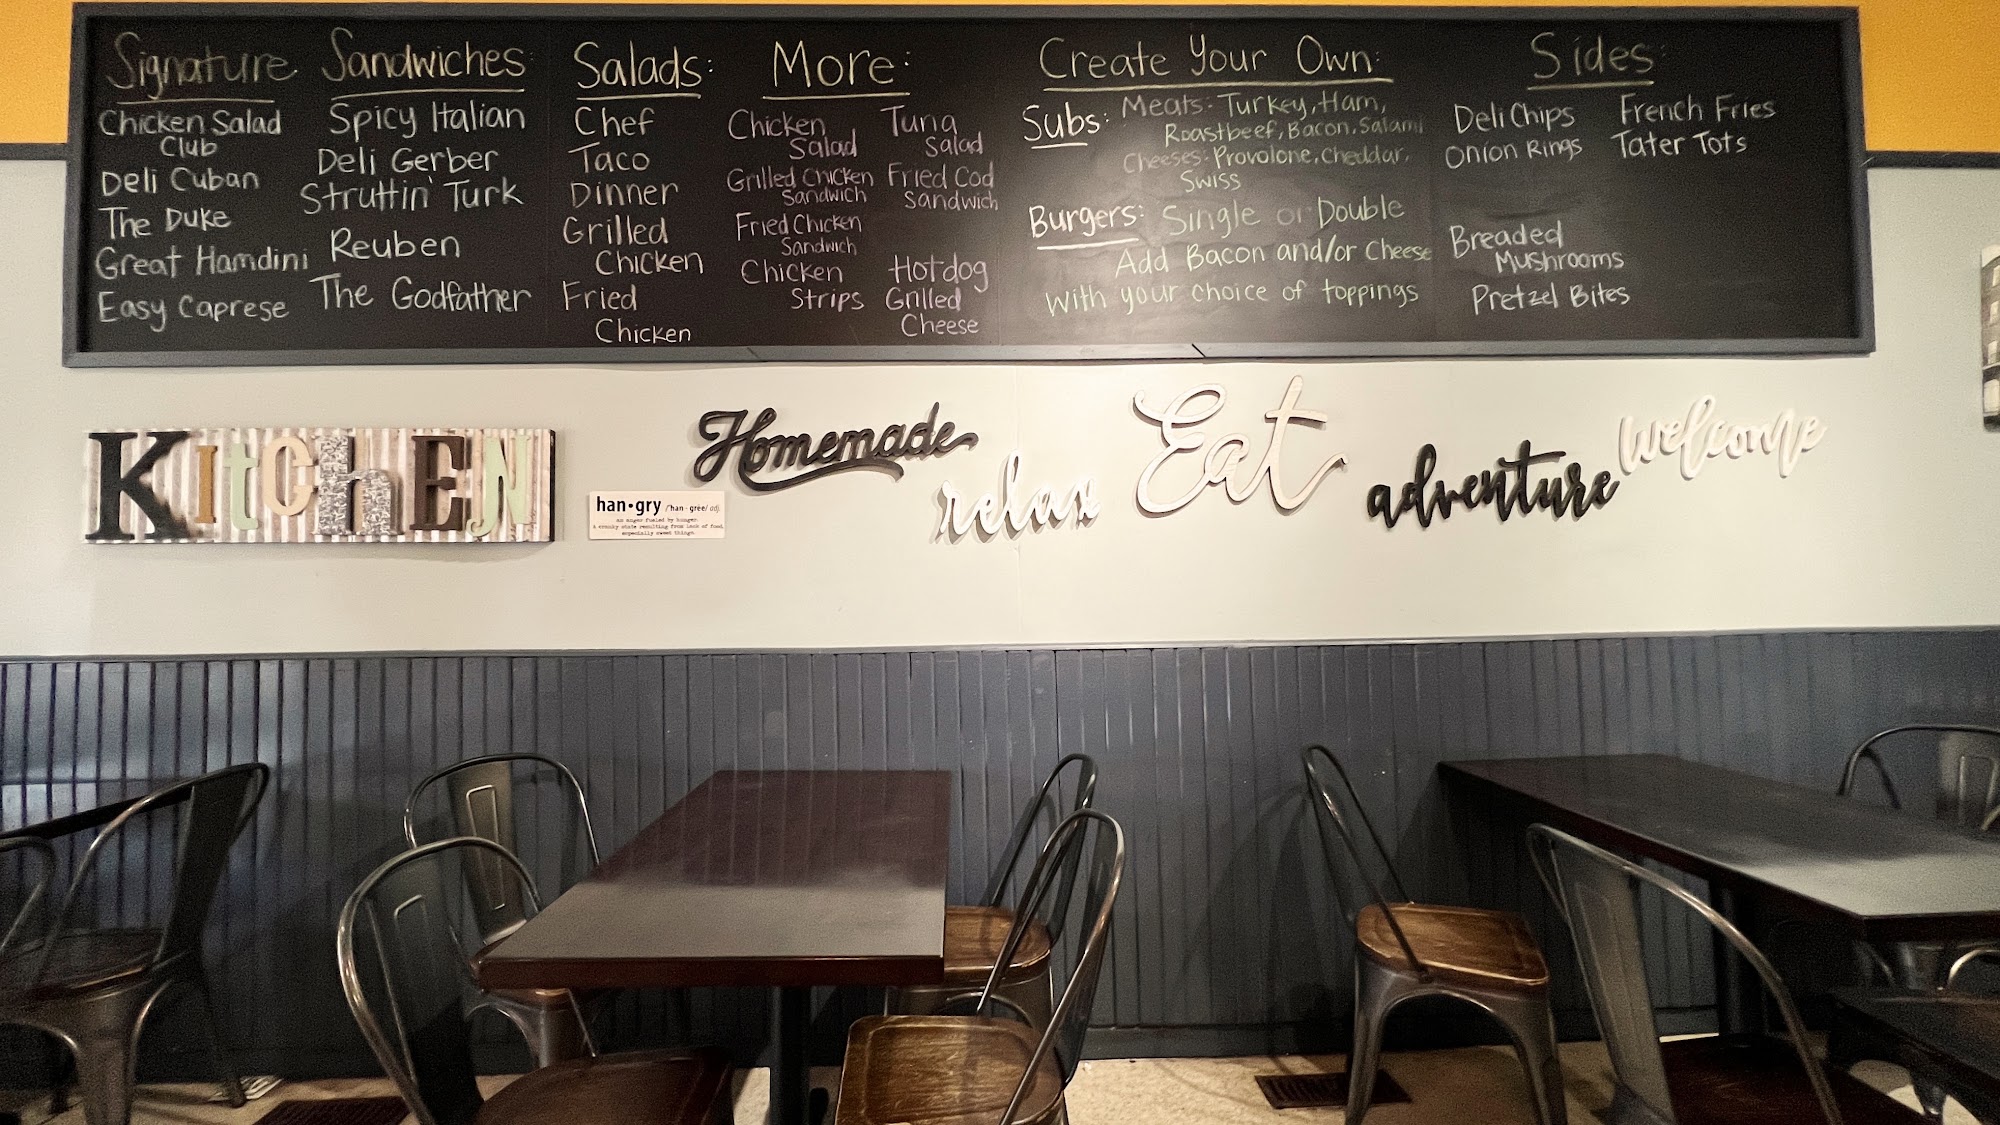 Signature Sandwiches:
Chicken Salad
Club
Deli Cuban
The Duke
Great Hamdini
Easy Caprese
Spicy Italian
Deli Gerber
Struttin' Turk
Reuben
The Godfather
Salads:
Chef
Taco
Dinner
Grilled
Chicken
Fried
Chicken
More:
Chicken
Salad
Grilled Chicken
Sandwich
Fried Chicken
Sandwich
Chicken
Strips
Tuna
Salad
Fried Cod
Sandwich
Hotdog
Grilled
Cheese
Create Your Own:
Subs: Meats: Turkey, Ham,
Roastbeef, Bacon, Salami
Cheeses: Provolone, Cheddar,
Swiss
Burgers: Single or Double
Add Bacon and/or Cheese
with your choice of toppings
Sides:
Deli Chips
Onion Rings
French Fries
Tater Tots
Breaded
Mushrooms
Pretzel Bites
KitchEN
han•gry /'han - gree/ adj.
an anger fueled by hunger.
a cranky state resulting from lack of food,
especially sweet things.
Homemade
relax
Eat
adventure
welcome